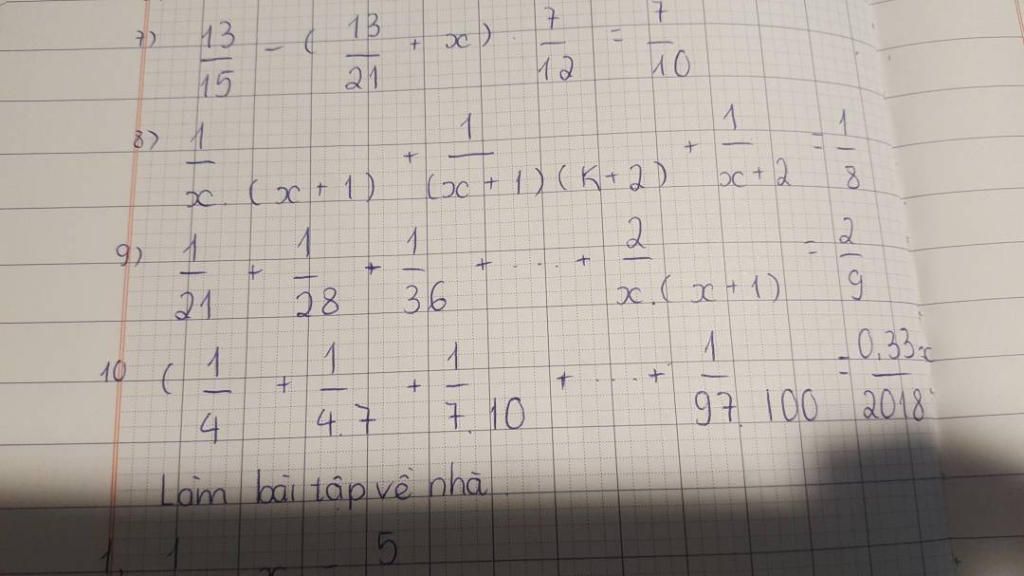 7) 13/15 - ( 13/21 + x ) . 7/12 = 7/10
8) 1/x.(x+1) + 1/(x+1)(x+2) + 1/x+2 = 1/8
9) 1/21 + 1/28 + 1/36 + ... + 2/x.(x+1) = 2/9
10 ( 1/4 + 1/4.7 + 1/7.10 + ... + 1/97.100 = 0,33x/2018
Làm bài tập về nhà
1. 1 x = 5